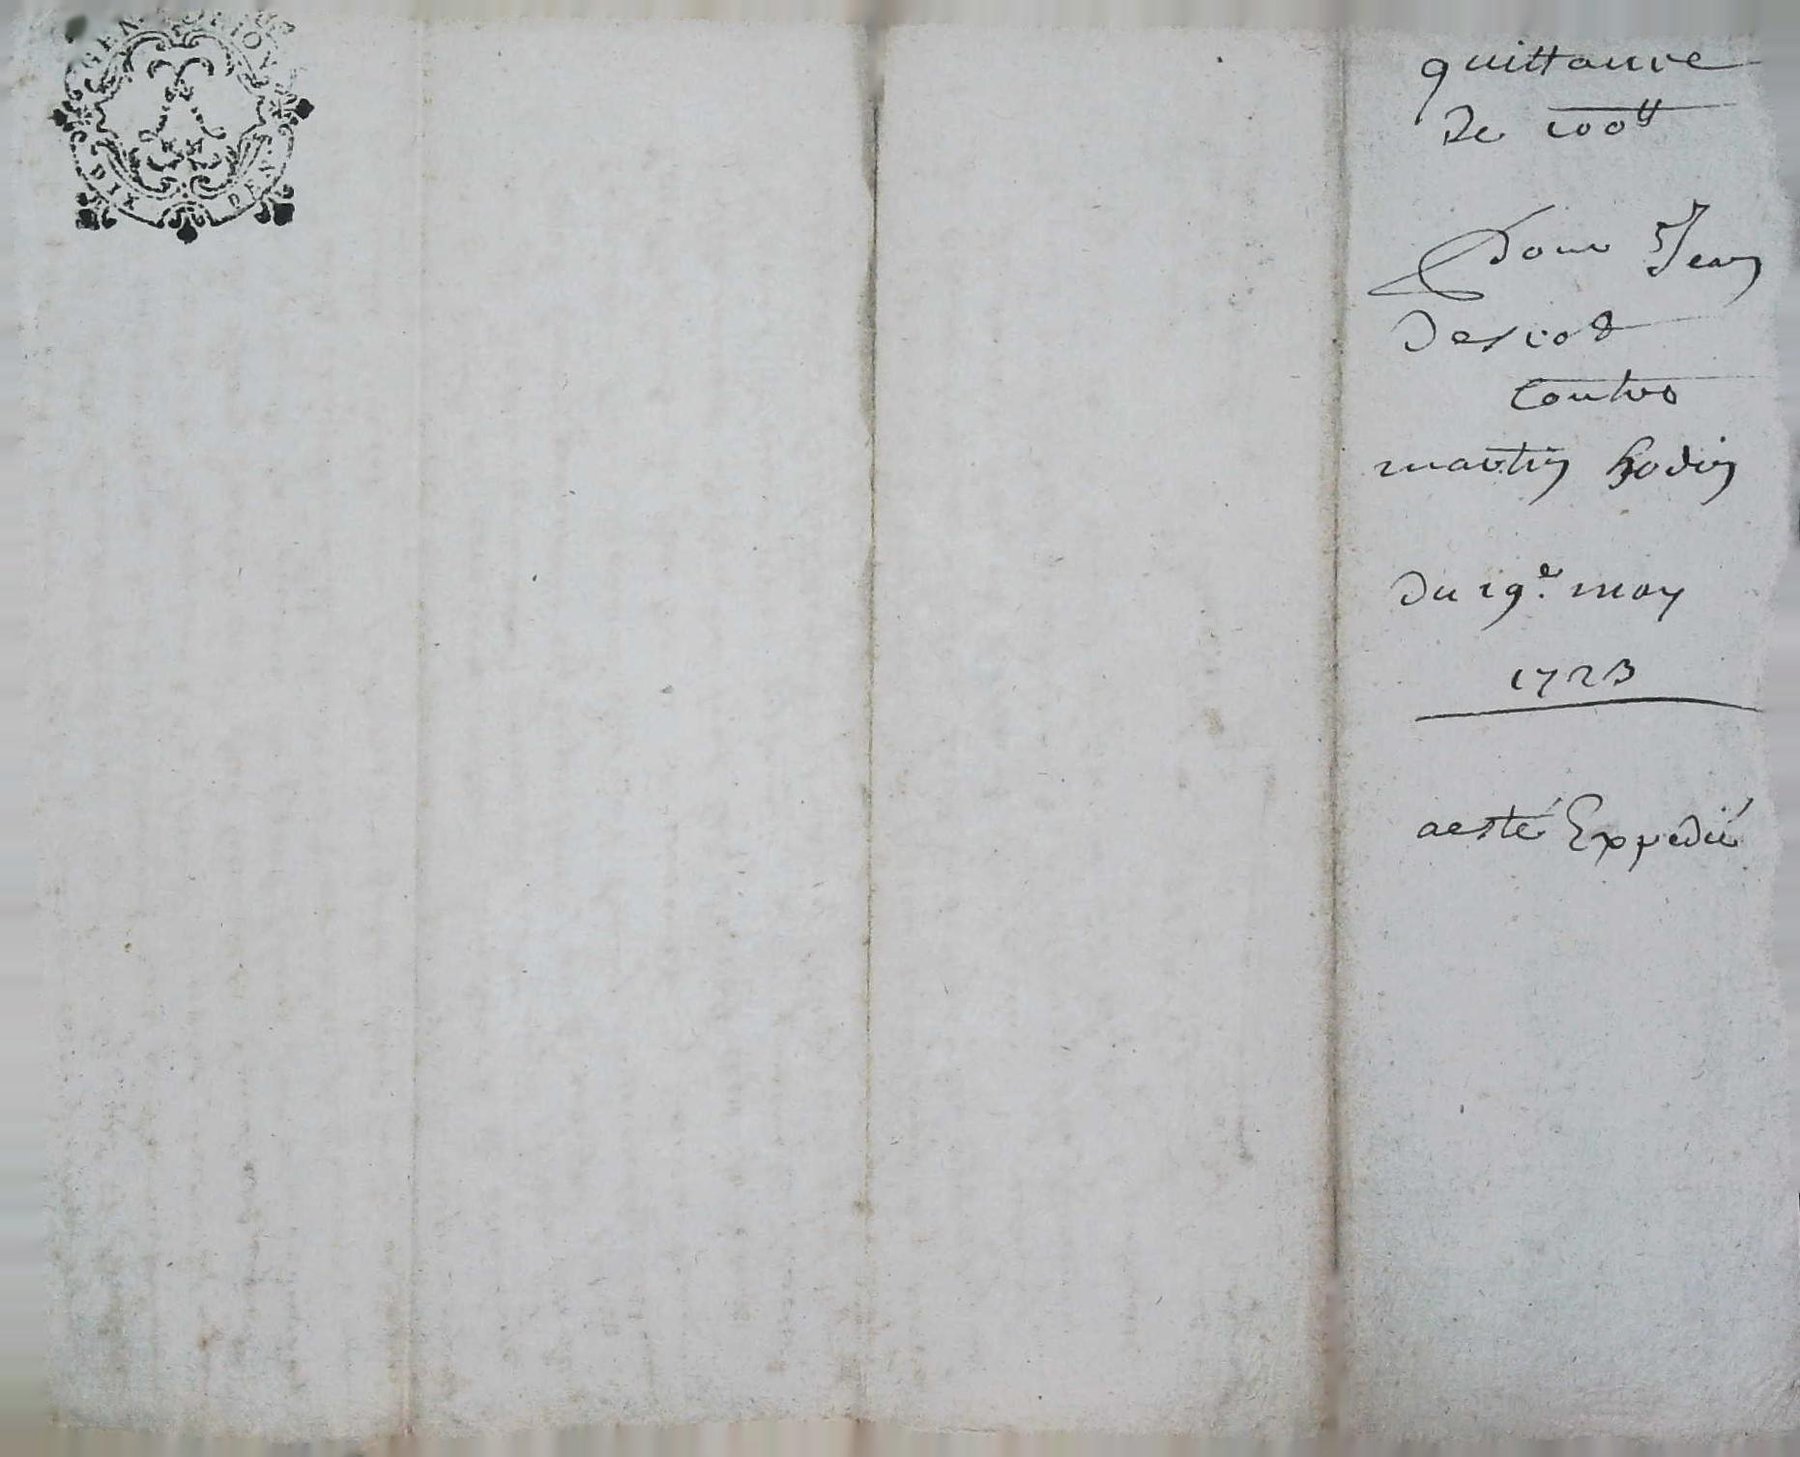 GEN
DIX DEN
quittance
de 100ᵗᵗ
pour Jean
descot
Contre
martin hodin
du 19.e may
1723
aesté Expedié